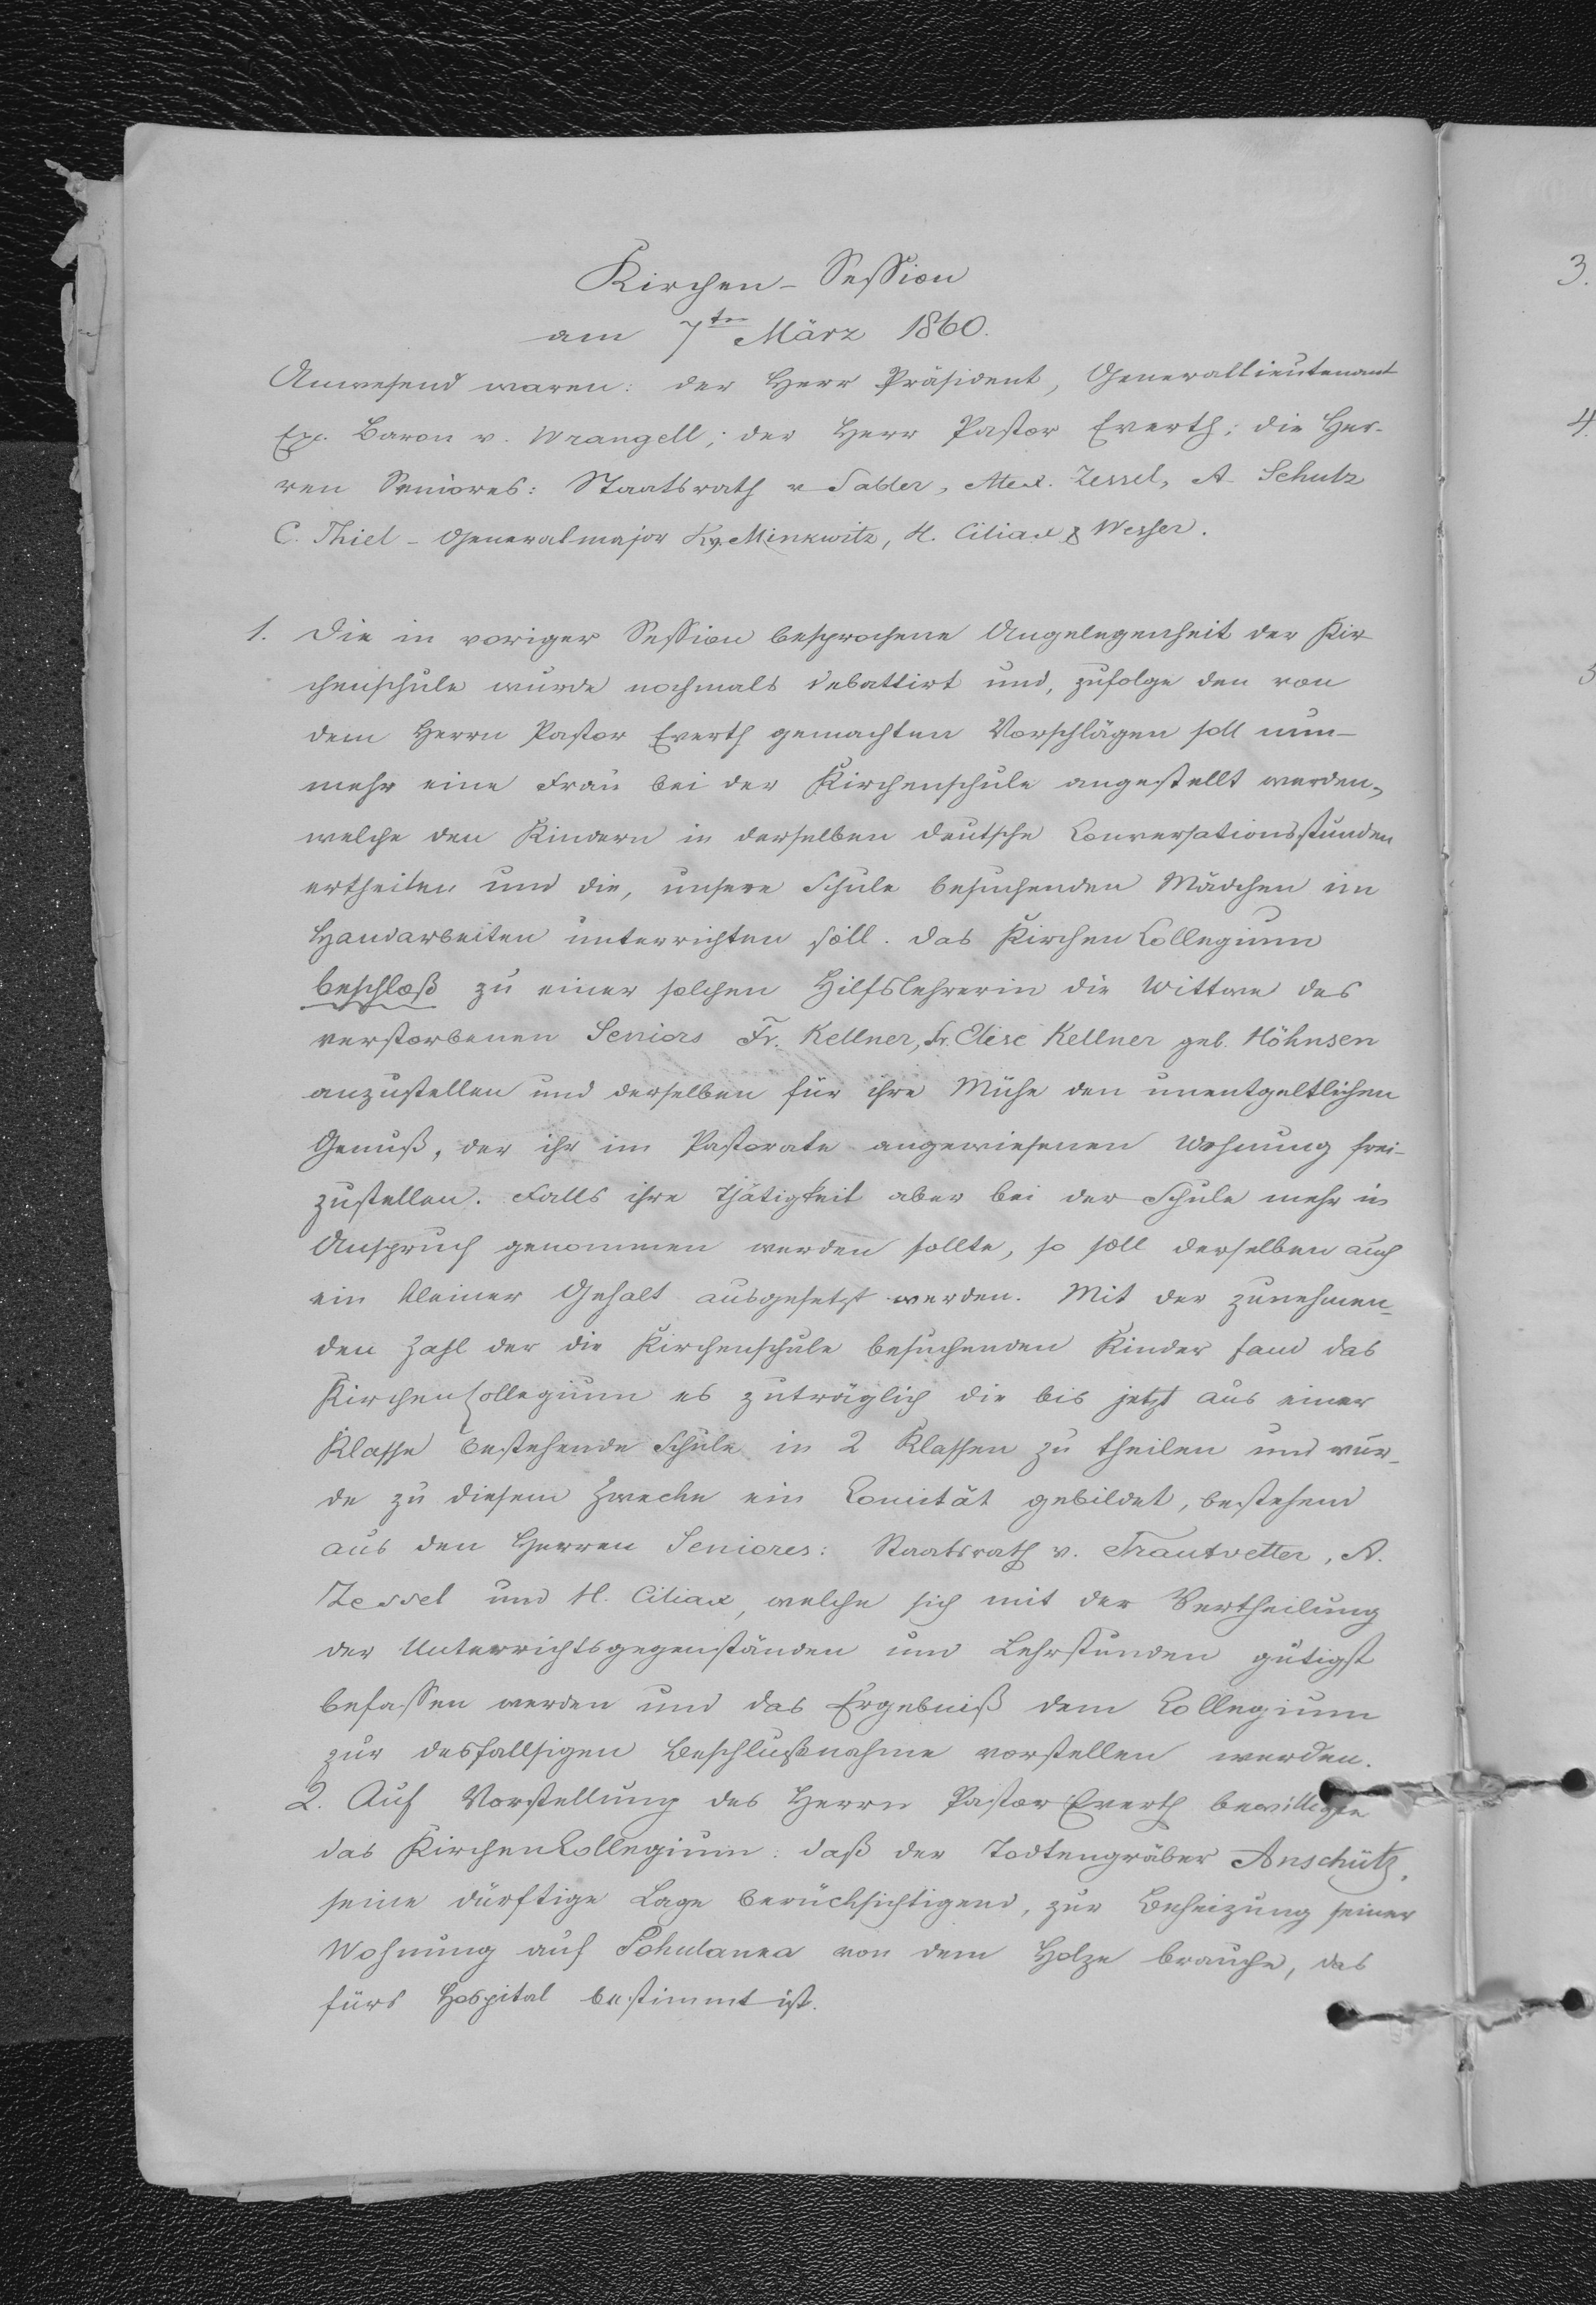 Kirchen-Session
am 7ten März 1860.
Anwesend waren: der Herr Präsident, Generallieutenant
Ex. Baron v. Wrangell; der Herr Pastor Everth; die Her-
ren Seniores: Staatsrath v Sabler, Alex. Zessel, A. Schulz
C. Thiel - Generalmajor K. v. Minkwitz, H. Ciliax & Wesser.
1. Die in voriger Session besprochene Angelegenheit der Kir
chenschule wurde nochmals debattirt und, zufolge den von
dem Herrn Pastor Everth gemachten Vorschlägen soll nun-
mehr eine Frau bei der Kirchenschule angestellt werden,
welche den Kindern in derselben deutsche Conversationsstunden
ertheilen und die, unsere Schule besuchenden Mädchen im
Handarbeiten unterrichten soll. Das Kirchen Collegium
beschloß zu einer solchen Hilfslehrerin die Wittwe des
verstorbenen Seniors Fr. Kellner, Fr. Elise Kellner geb. Höhnsen
anzustellen und derselben für ihre Mühe den unentgeltlichen
Genuß, der ihr im Pastorate angewiesenen Wohnung frei-
zustellen. Falls ihre Thätigkeit aber bei der Schule mehr in
Anspruch genommen werden sollte, so soll derselben auch
ein kleiner Gehalt ausgesetzt werden. Mit der zunehmen-
den Zahl der die Kirchenschule besuchenden Kinder fand das
Kirchencollegium es zuträglich die bis jetzt aus einer
Klasse bestehende Schule in 2 Klassen zu theilen und wur-
de zu diesem Zwecke ein Comität gebildet, bestehend
aus den Herren Seniores: Staatsrath v. Trautvetter, A.
Zessel und H. Ciliax, welche sich mit der Vertheilung
der Unterrichtsgegenständen und Lehrstunden gütigst
befassen werden und das Ergebniß dem Collegium
zur desfallsigen Beschlußnahme vorstellen werden.
2. Auf Vorstellung des Herrn Pastor Everth bewilligte
das Kirchen Collegium: daß der Todtengräber Anschütz,
seine dürftige Lage berücksichtigend, zur Beheizung seiner
Wohnung auf Pohulanka von dem Holze brauche, das
fürs Hospital bestimmt ist.
3.
4.
5